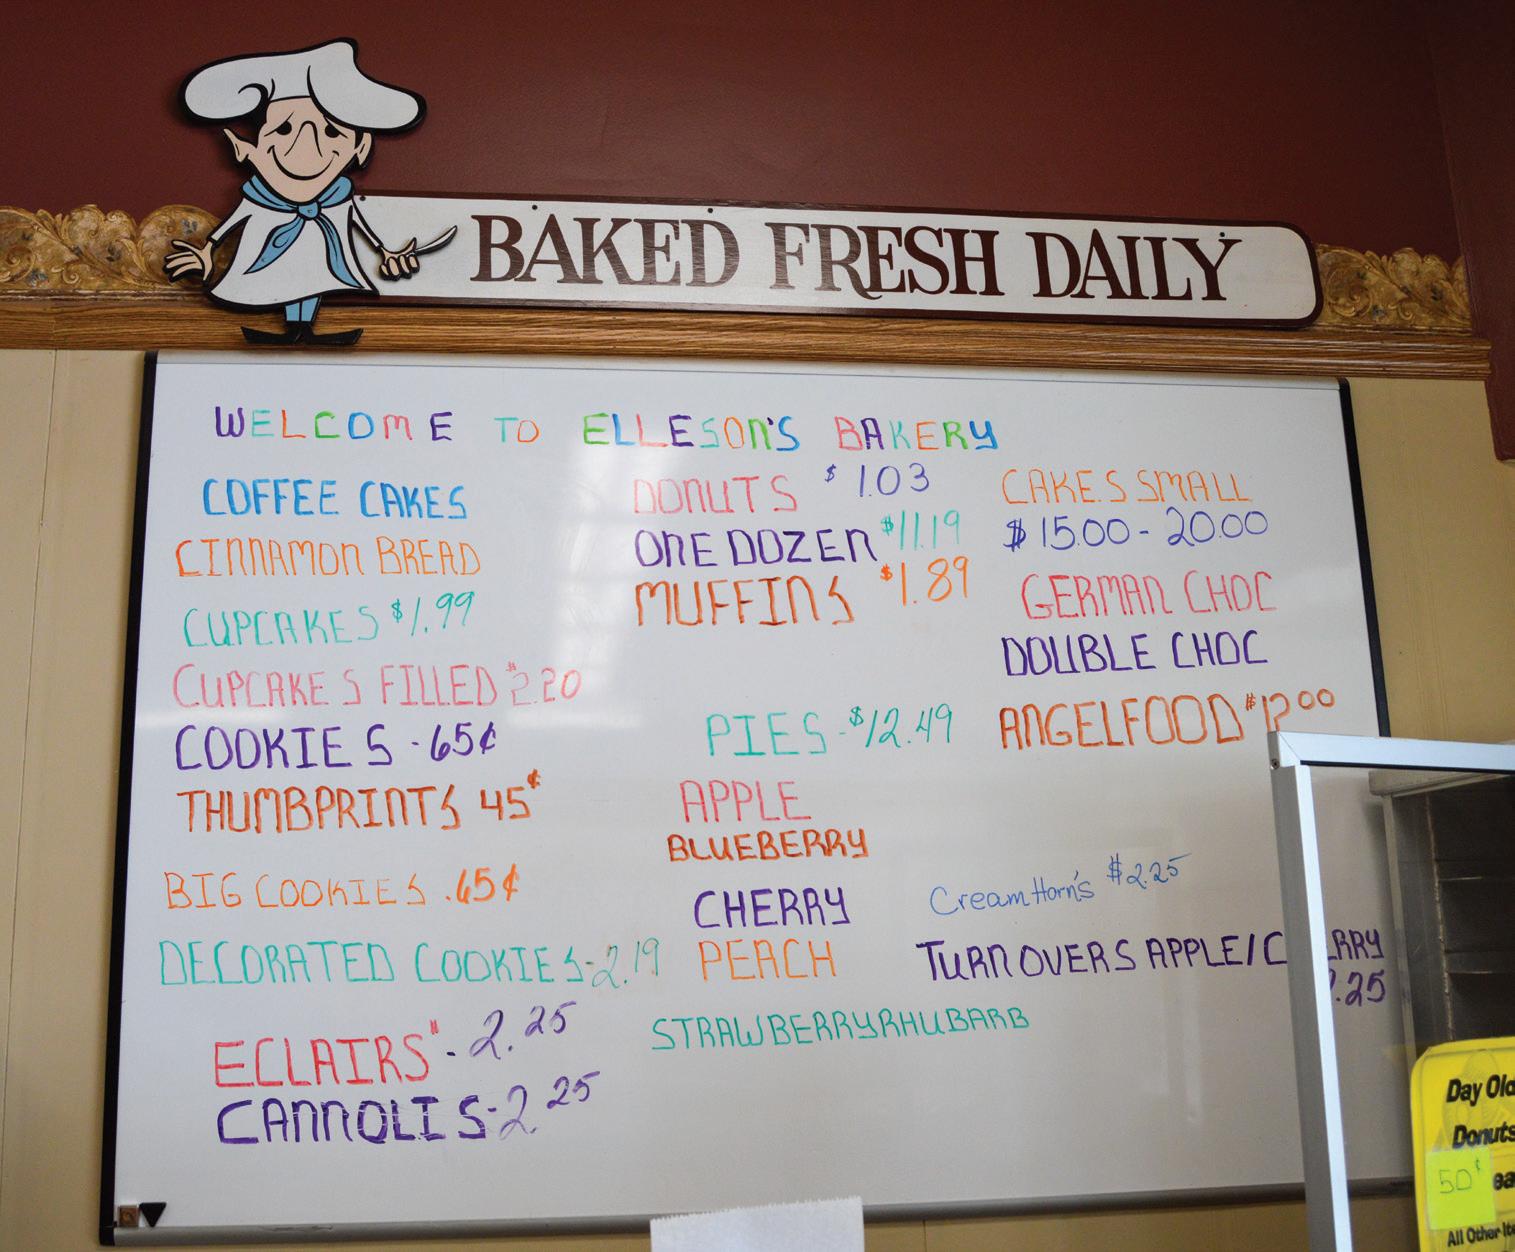 BAKED FRESH DAILY
WELCOME TO ELLESON'S BAKERY
COFFEE CAKES
CINNAMON BREAD
CUPCAKES $1.99
CUPCAKES FILLED $2.20
COOKIES - 65¢
THUMBPRINTS 45¢
BIG COOKIES .65¢
DECORATED COOKIES-2.19
ECLAIRS"- 2.25
CANNOLIS-2.25
DONUTS $1.03
ONE DOZEN $11.19
MUFFINS $1.89
PIES -$12.49
APPLE
BLUEBERRY
CHERRY
PEACH
STRAWBERRYRHUBARB
CAKES SMALL
$15.00-20.00
GERMAN CHOC
DOUBLE CHOC
ANGELFOOD $12.00
Cream Horn's $2.25
TURNOVERS APPLE/C RRY
.25
Day Old
Donuts
50¢ ea
All Other Ite